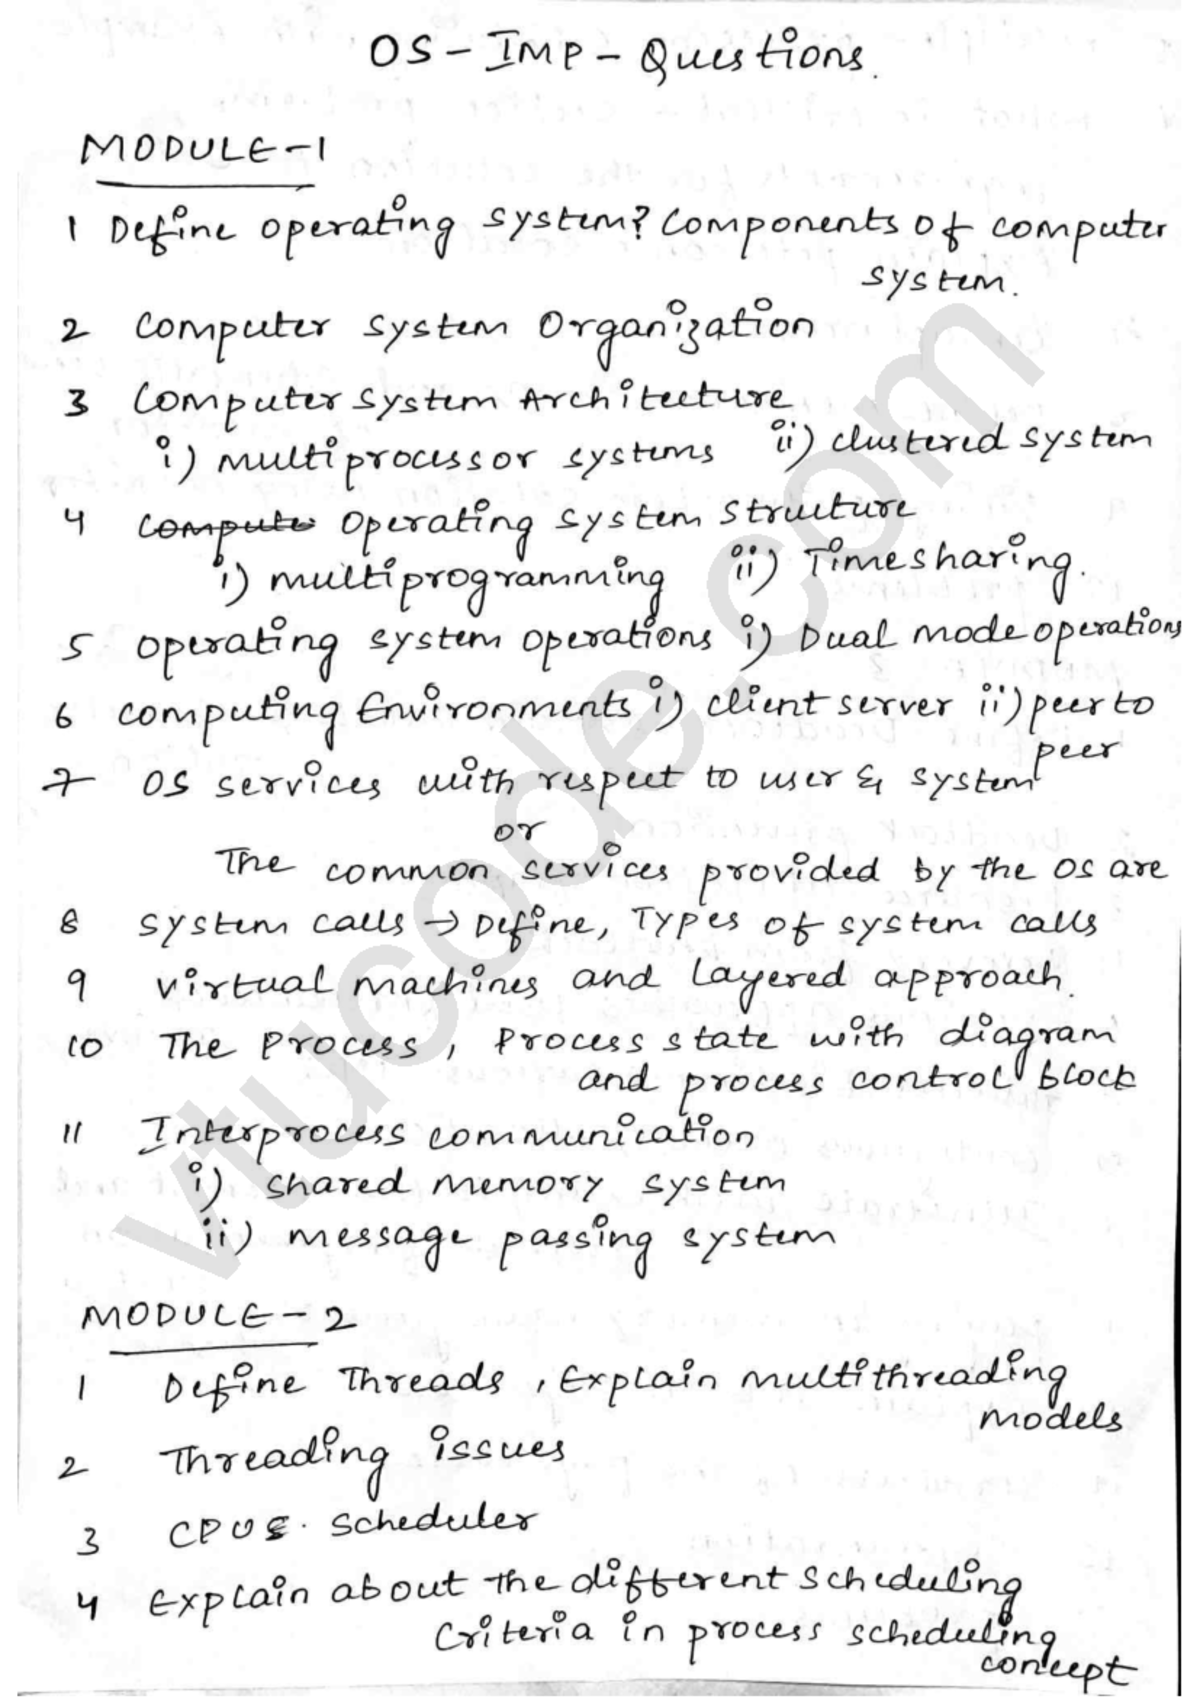 OS - IMP - Questions.
MODULE-1
1 Define operating system? Components of computer
system.
2 Computer System Organization
3 Computer System Architecture
i) multiprocessor systems ii) clustered system
4 Compute Operating system structure
i) multiprogramming ii) Timesharing.
5 Operating system operations i) Dual mode operations
6 computing Environments i) client server ii) peer to
peer
7 OS services with respect to user & system
or
The common services provided by the OS are
8 System calls → Define, Types of system calls
9 virtual machines and Layered approach.
10 The Process, Process state with diagram
and process control block
11 Interprocess communication
i) shared memory system
ii) message passing system
MODULE - 2
1 Define Threads, Explain multithreading
models
2 Threading issues
3 Scheduler
4 Explain about the different scheduling
Criteria in process scheduling
concept
vtucode.com